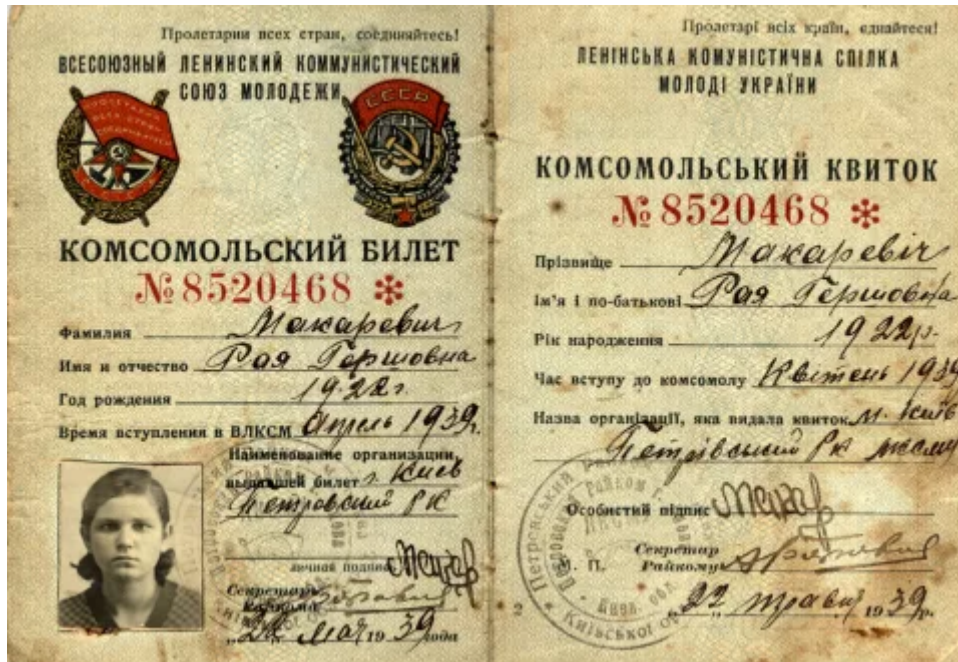 Пролетарии всех стран, соединяйтесь!
ВСЕСОЮЗНЫЙ ЛЕНИНСКИЙ КОММУНИСТИЧЕСКИЙ
СОЮЗ МОЛОДЕЖИ
СССР
КОМСОМОЛЬСКИЙ БИЛЕТ
№ 8520468 *
Фамилия Макаревич
Имя и отчество Рая Гершовна
Год рождения 1922 г.
Время вступления в ВЛКСМ Апрель 1939 г.
Наименование организации,
выдавшей билет г. Киев
Петровский РК
личная подпись
Секретарь
Райкома
„22“ Мая 1939 года
Пролетарі всіх країн, єднайтеся!
ЛЕНІНСЬКА КОМУНІСТИЧНА СПІЛКА
МОЛОДІ УКРАЇНИ
КОМСОМОЛЬСЬКИЙ КВИТОК
№ 8520468 *
Прізвище Макаревіч
Ім'я і по-батькові Рая Гершовна
Рік народження 1922 р.
Час вступу до комсомолу Квітень 1939
Назва організації, яка видала квиток м. Київ
Петрівський РК ЛКСМУ
Особистий підпис Макар
Секретар
М. П. Райкому
„22“ травня 1939 р.
2